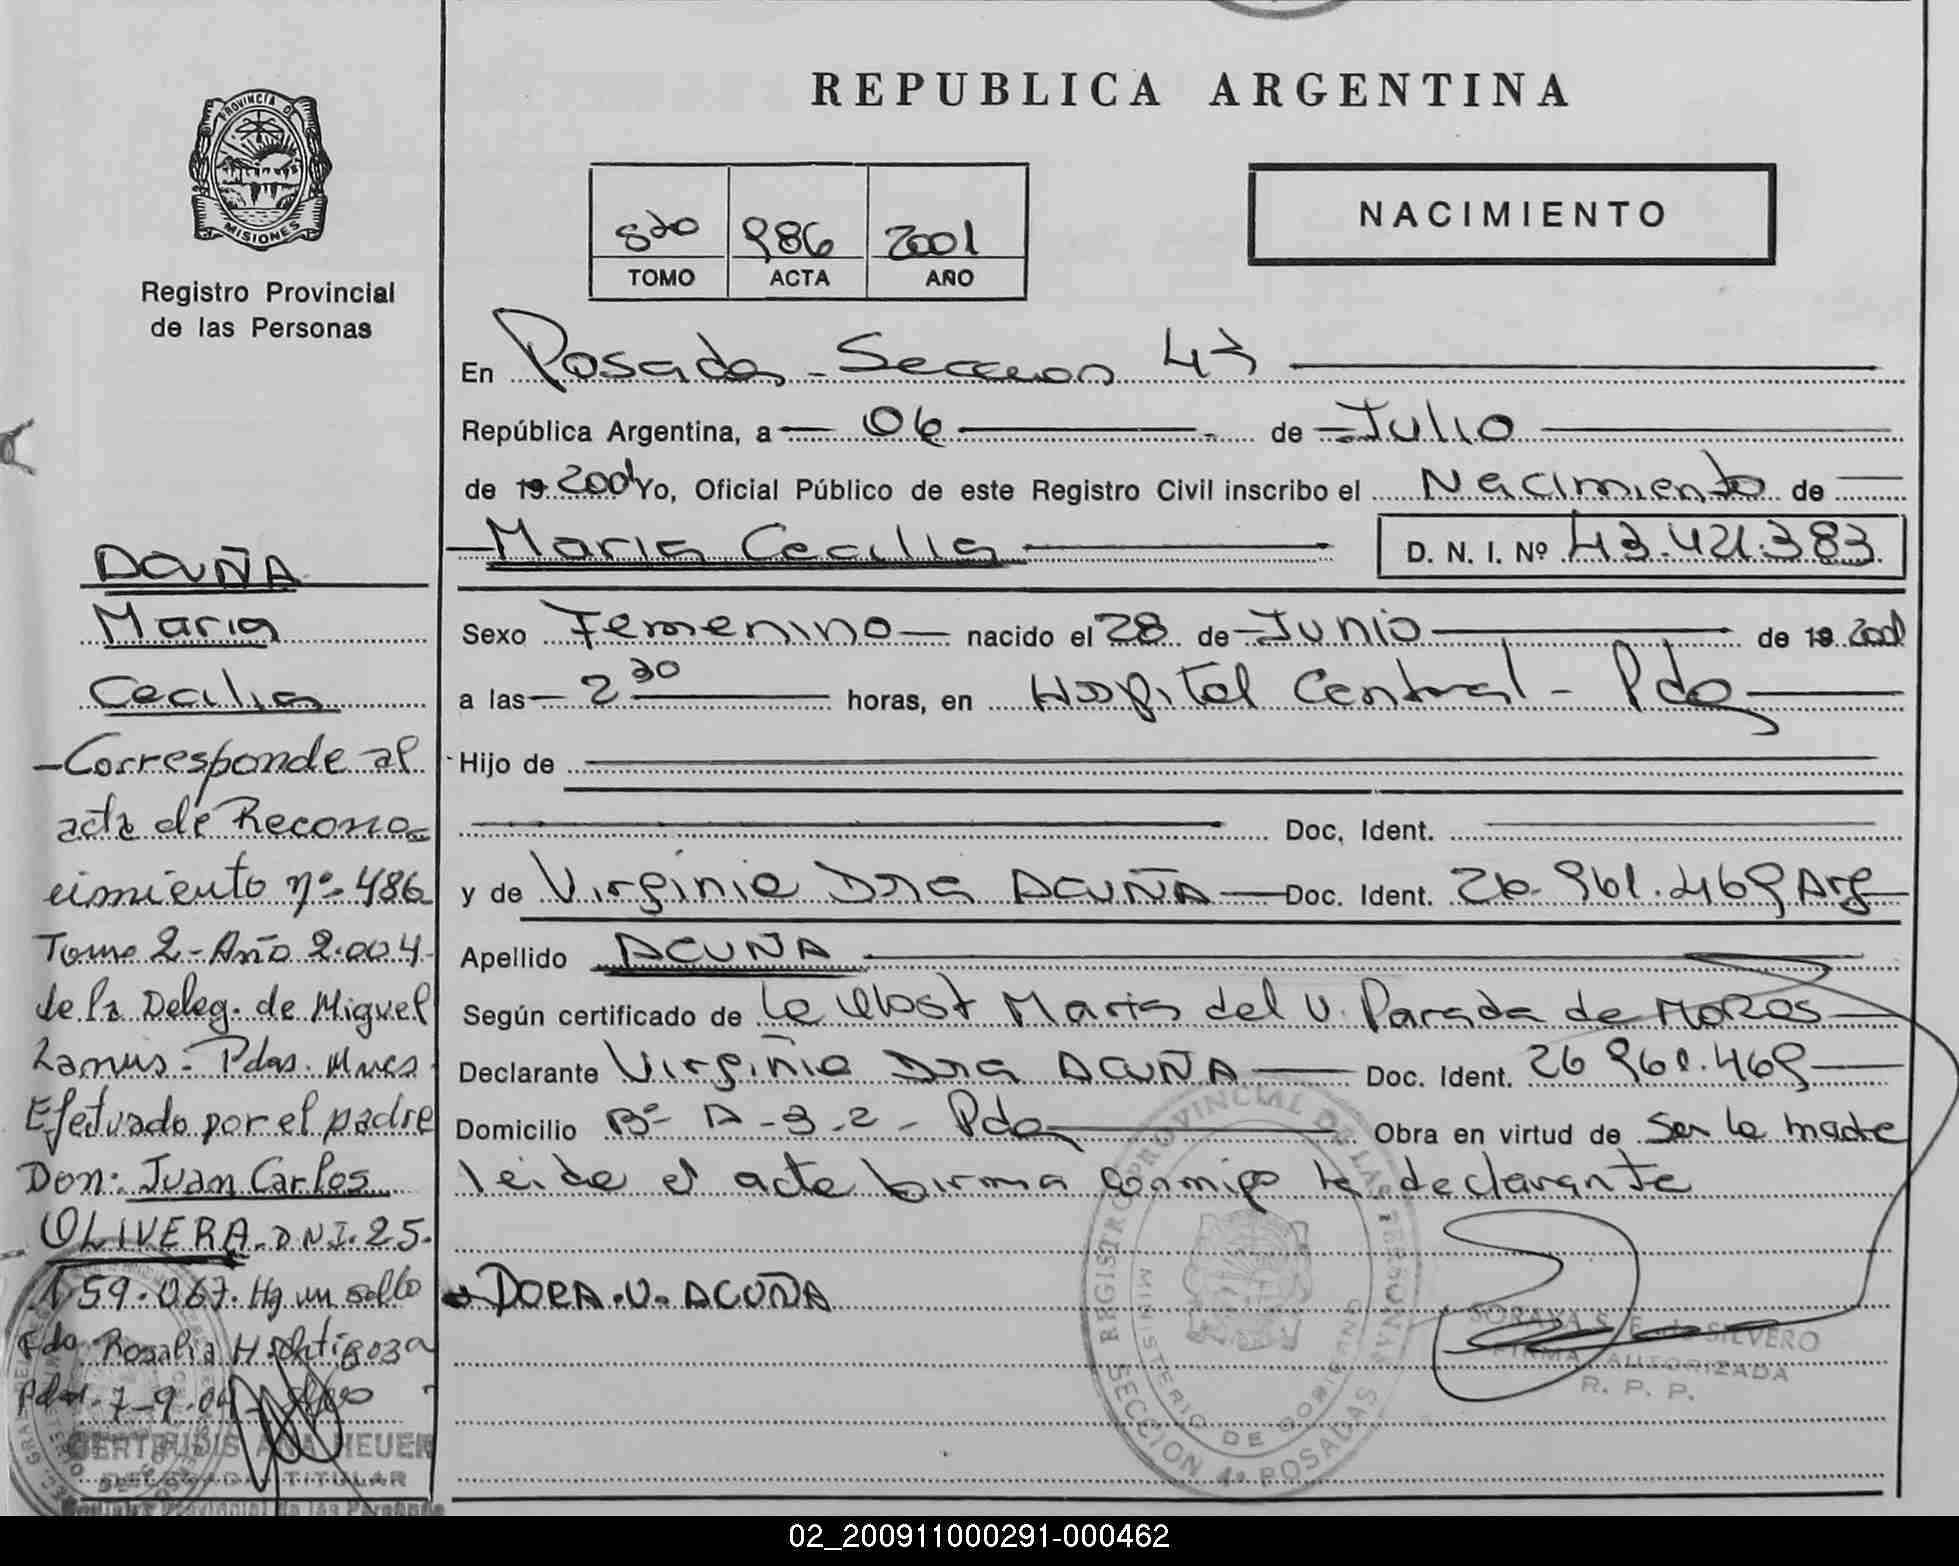 PROVINCIA DE
MISIONES
Registro Provincial
de las Personas
ACUÑA
Maria
Cecilia
-Corresponde al
acta de Recono=
cimiento nº 486
Tomo 2-Año 2.004-
de la Deleg. de Miguel
Lanus- Pdas. Mnes
Efetuado por el padre
Don: Juan Carlos
OLIVERA-DNI.25.
159.067. Hay un sello
Fdo Rosalia H.
7-9-04
GERTRUDIS ANA HEUER
DELEGADA TITULAR
Registro Provincial de las Personas
REPUBLICA ARGENTINA
8vo 986 2001
TOMO ACTA AÑO
NACIMIENTO
En Posadas - Seccion 4ta
República Argentina, a 06 de Julio
de 19 2001 Yo, Oficial Público de este Registro Civil inscribo el Nacimiento de
Maria Cecilia D. N. I. Nº 43.421.383
Sexo Femenino nacido el 28 de Junio de 19 2001
a las 2 30 horas, en Hospital Central - Pdas
Hijo de
Doc, Ident.
y de Virginia Dora ACUÑA Doc. Ident. 26.961.469 Arg
Apellido ACUÑA
Según certificado de la Obst Maria del V. Parada de MOZOS
Declarante Virginia Dora ACUÑA Doc. Ident. 26 961.469
Domicilio Bº A-3-2- Pdas Obra en virtud de ser la madre
leida el acta firma conmigo la declarante
DORA.V.ACUÑA
REGISTRO PROVINCIAL DE LAS PERSONAS
MINISTERIO DE GOBIERNO
SECCION 4ª POSADAS
SORAYA S. E. de SILVERO
FIRMA AUTORIZADA
R. P. P.
02_200911000291-000462